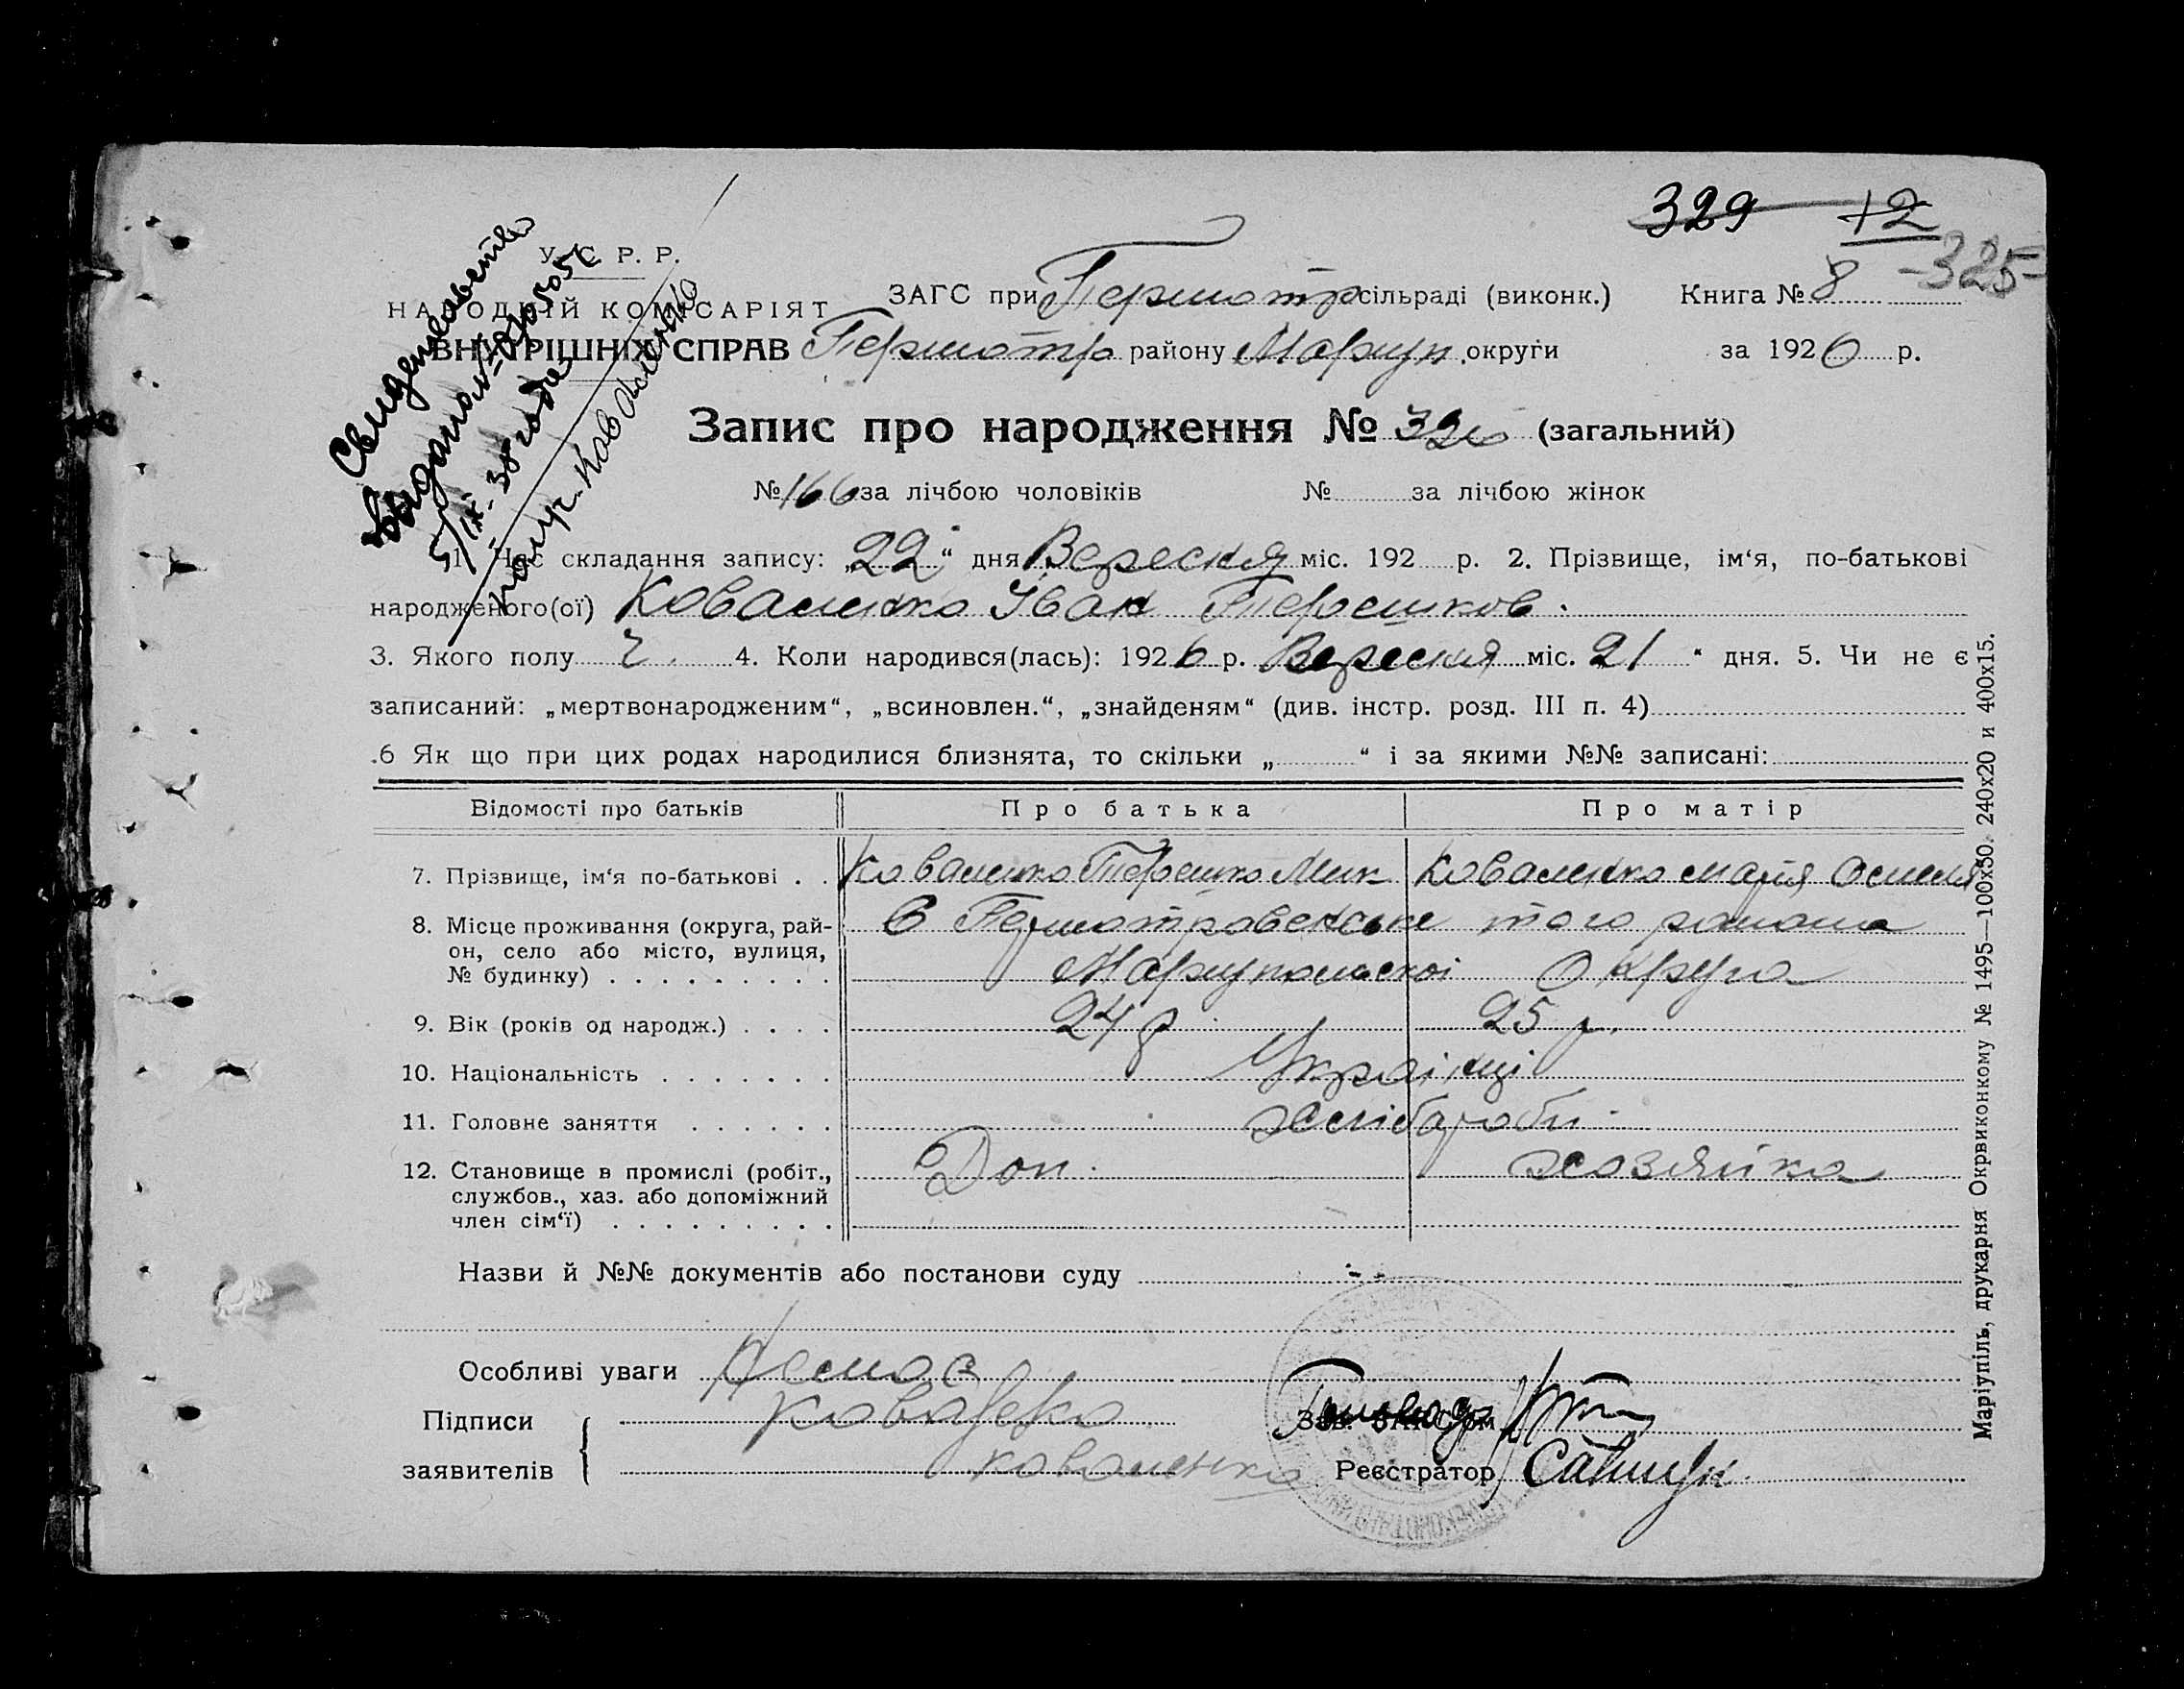 329 12
-325-
У. С. Р. Р.
НАРОДНІЙ КОМІСАРІЯТ
ВНУТРІШНІХ СПРАВ
Свидетельство
выдано №
5/IX-38 года
получ. Коваленко
ЗАГС при сільраді (виконк.) Книга № 8
району Маріуп. округи за 1926 р.
Запис про народження № 326 (загальний)
№ 166 за лічбою чоловіків № за лічбою жінок
1. Час складання запису: „22“ дня Вересня міс. 192 р. 2. Прізвище, ім‘я, по-батькові
народженого(ої) Коваленко Іван Терешков.
3. Якого полу Ч. 4. Коли народився(лась): 1926 р. Вересня міс. „21“ дня. 5. Чи не є
записаний: „мертвонародженим“, „всиновлен.“, „знайденям“ (див. інстр. розд. III п. 4)
.6 Як що при цих родах народилися близнята, то скільки „ “ і за якими №№ записані:
Відомості про батьків Про батька Про матір
7. Прізвище, ім‘я по-батькові . . Коваленко Терешко Мик Коваленко Марія
8. Місце проживання (округа, рай-
он, село або місто, вулиця,
№ будинку) . . . . . . . . .
того района
Маріупольскоі Округа
9. Вік (років од народж.) . . . . 24 р 25 р.
10. Національність . . . . . . . Украінці
11. Головне заняття . . . . . . Хлібароби
12. Становище в промислі (робіт.,
службов., хаз. або допоміжний
член сім‘ї) . . . . . . . . .
Доп. хозяйка
Назви й №№ документів або постанови суду - -
Особливі уваги Немає
Підписи
заявителів
Коваленко
Коваленко
Зав. ЗАГС'ом
Реєстратор
Маріупіль, друкарня Окрвиконкому № 1495—100х50. 240х20 и 400х15.